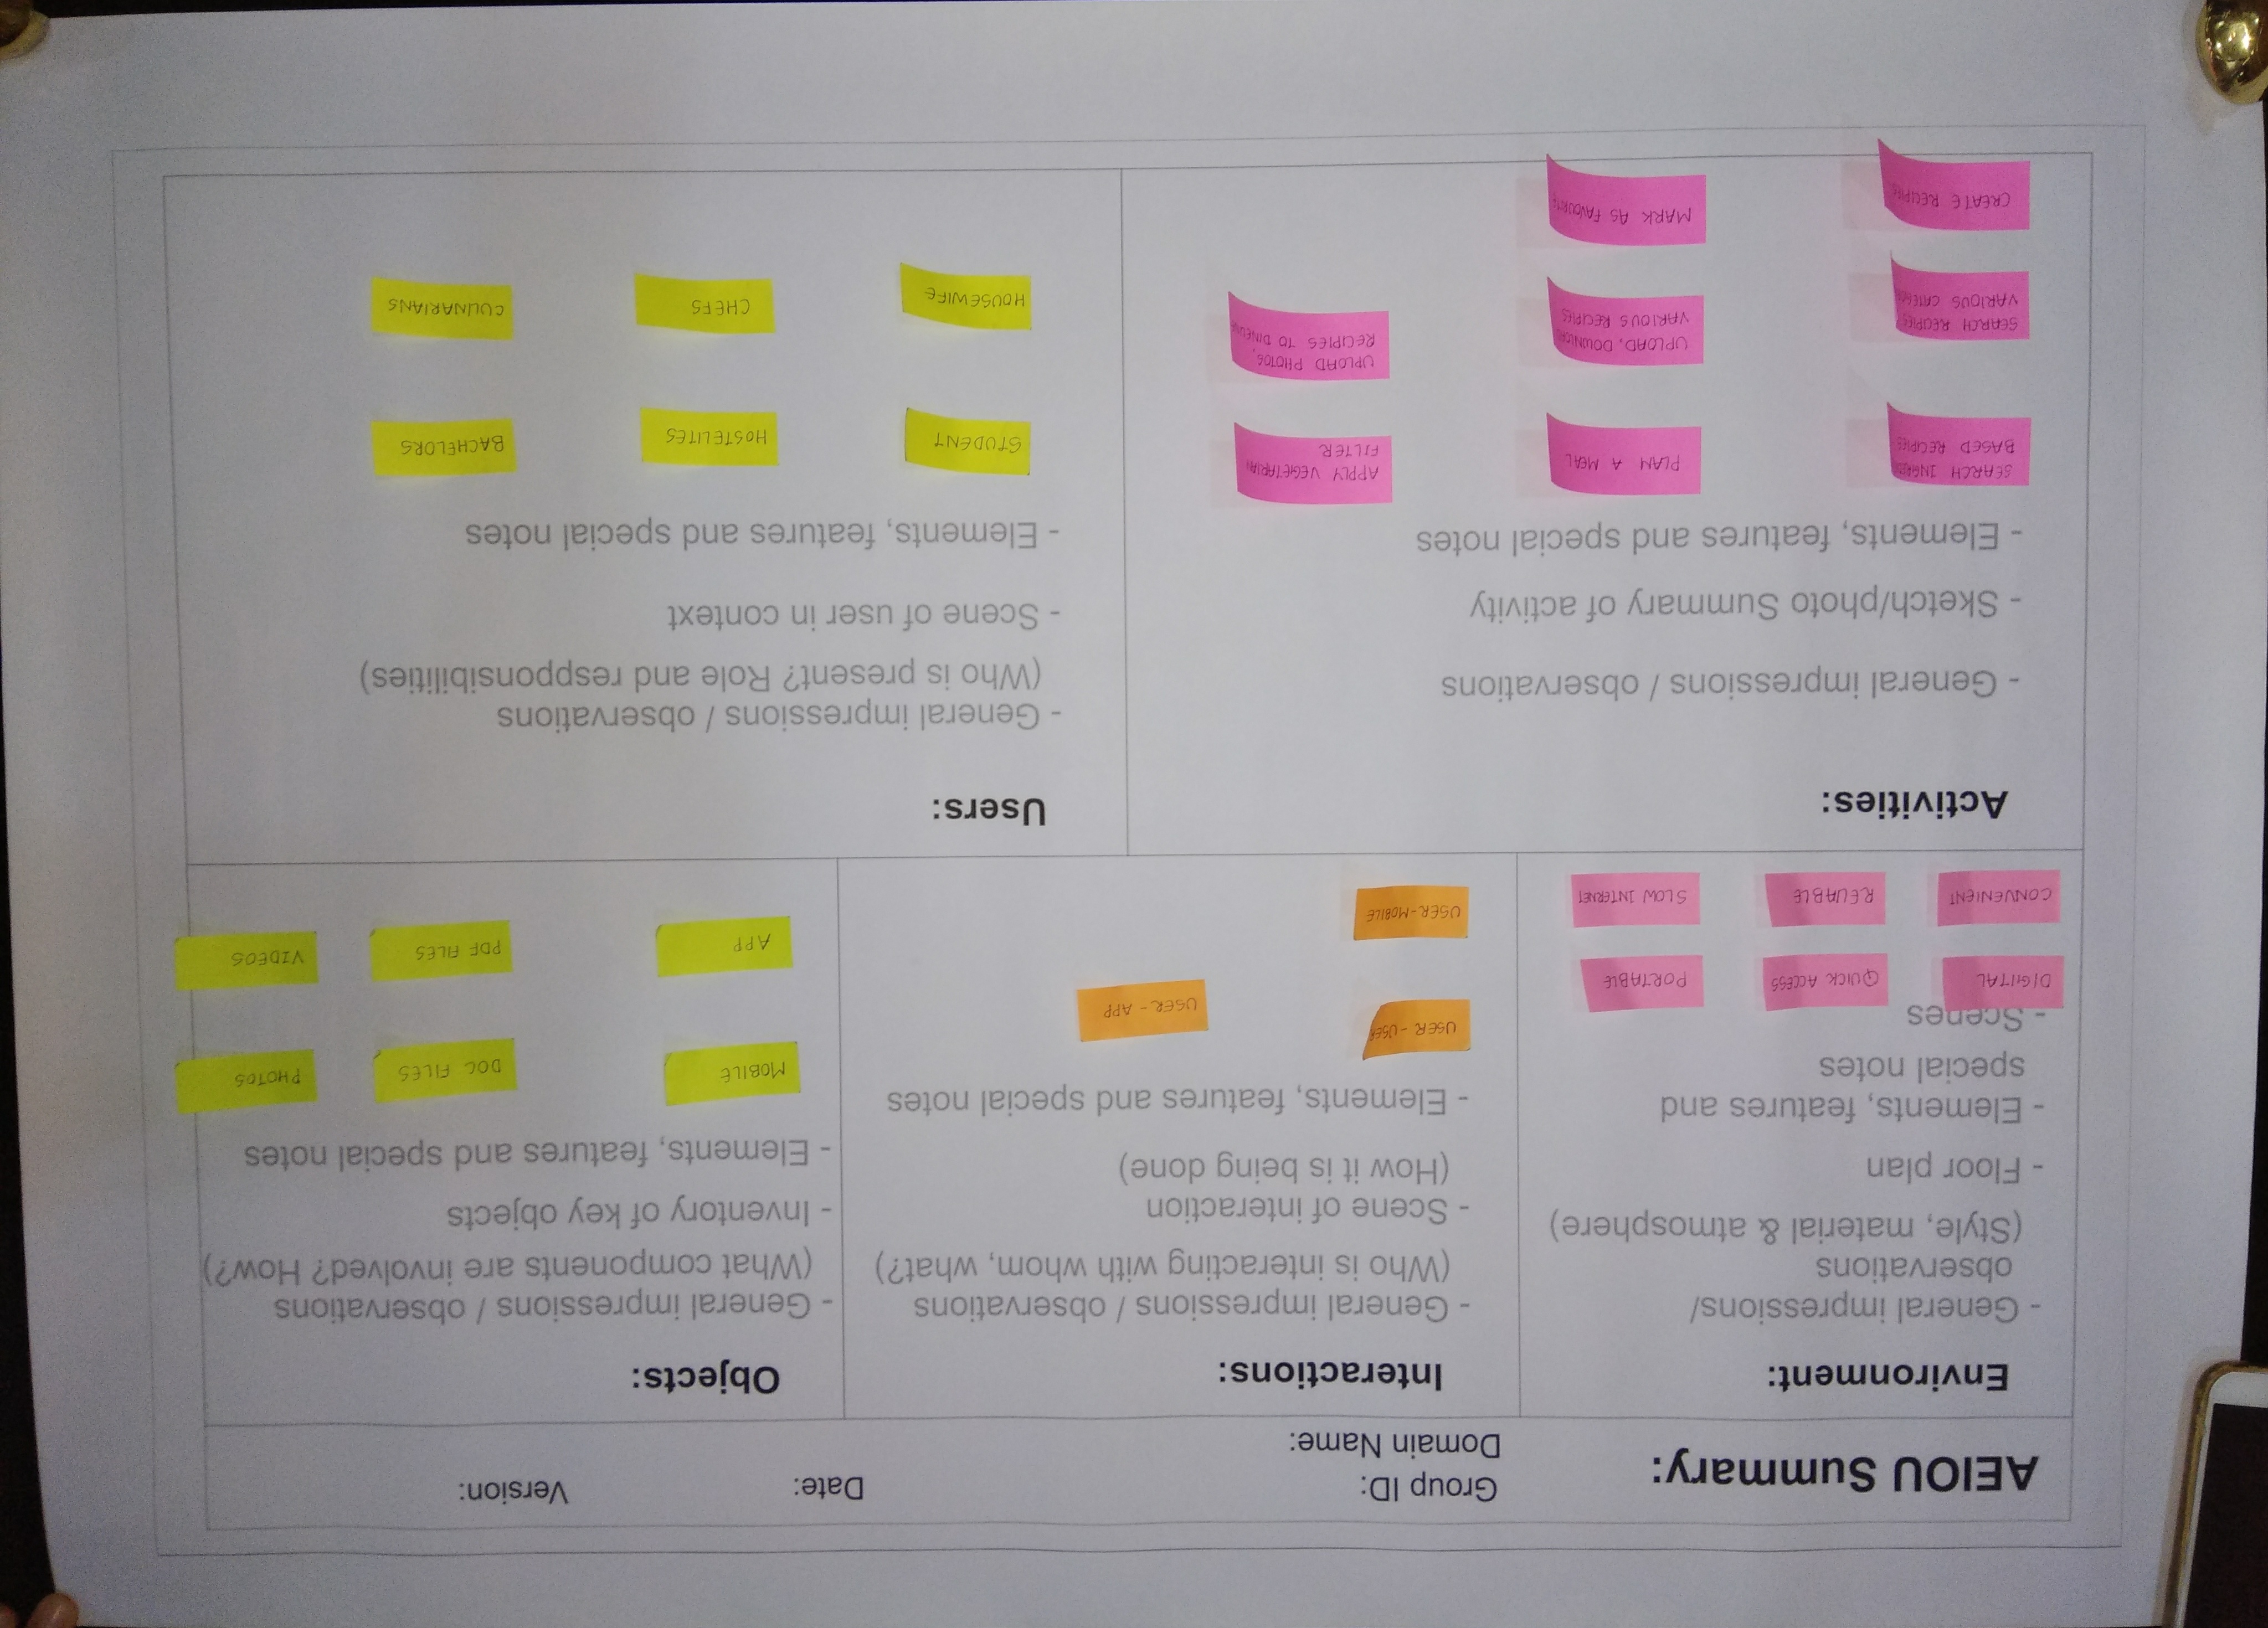 AEIOU Summary:
Group ID:
Domain Name:
Date:
Version:
Environment:
- General impressions/
observations
(Style, material & atmosphere)
- Floor plan
- Elements, features and
special notes
- Scenes
DIGITAL
QUICK ACCESS
PORTABLE
CONVENIENT
RELIABLE
SLOW INTERNET
Interactions:
- General impressions / observations
(Who is interacting with whom, what?)
- Scene of interaction
(How it is being done)
- Elements, features and special notes
USER - USER
USER - APP
USER-MOBILE
Objects:
- General impressions / observations
(What components are involved? How?)
- Inventory of key objects
- Elements, features and special notes
MOBILE
DOC FILES
PHOTOS
APP
PDF FILES
VIDEOS
Activities:
- General impressions / observations
- Sketch/photo Summary of activity
- Elements, features and special notes
SEARCH
BASED RECIPIES
PLAN A MEAL
APPLY VEGETARIAN
FILTER
SEARCH RECIPIES
VARIOUS
UPLOAD,
VARIOUS RECIPIES
UPLOAD PHOTOS,
RECIPIES TO
CREATE RECIPIES
MARK AS
Users:
- General impressions / observations
(Who is present? Role and ressponsibilities)
- Scene of user in context
- Elements, features and special notes
STUDENT
HOSTELITES
BACHELORS
HOUSEWIFE
CHEFS
CULINARIANS